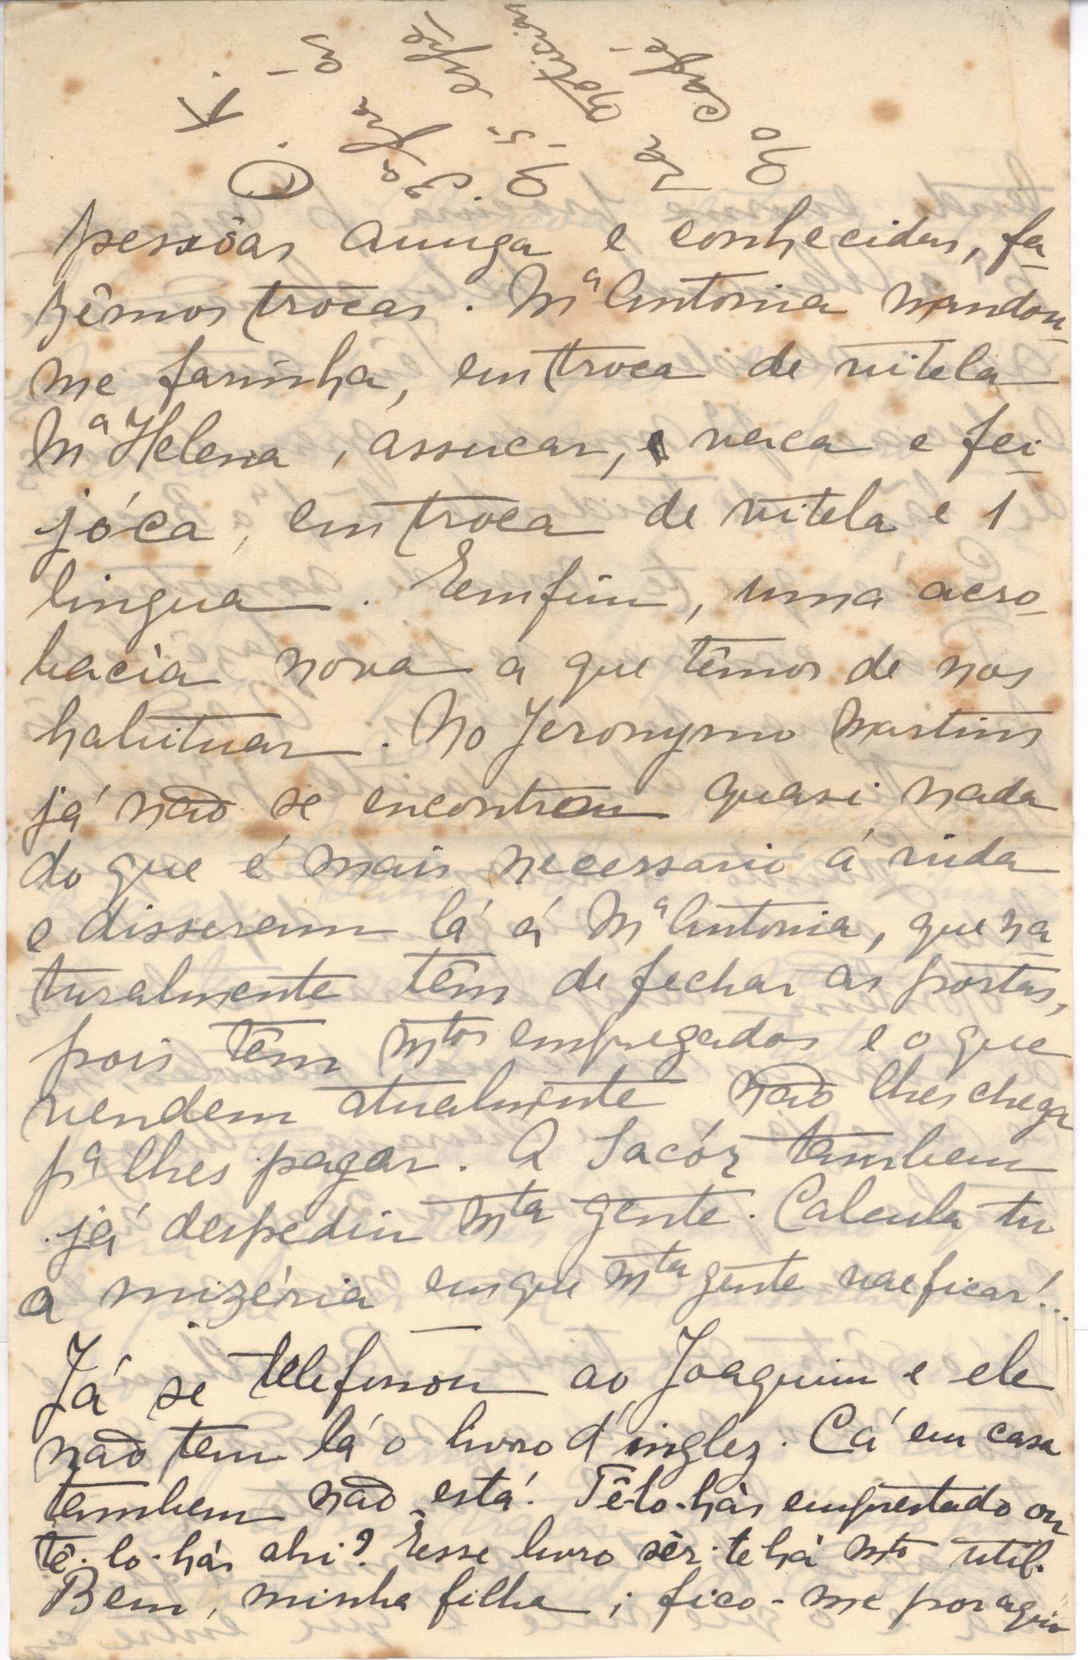 pessôas amiga e conhecidas, fa-
zêmos trocas. Mª Antonia mandou-
me farinha, em troca de vitela
Mª Helena, assucar, vaca e fei-
jóca, em troca de vitela e 1
lingua. Emfim, uma acro-
bacia nova a que têmos de nos
habituar. No Jeronymo Martins
já não se encontram quasi nada
do que é mais necessario á vida
e disseram lá á Mª Antonia, que na-
turalmente têm de fechar as portas,
pois têm mtos empregados e o que
vendem atualmente não lhes chega
pª lhes pagar. A Sacór tambem
já despediu mta gente. Calcula tu
a mizéria em que mta gente vae ficar!...
Já se telefonou ao Joaquim e ele
não tem lá o livro d'inglez. Cá em casa
tambem não está! Tê-lo-hás emprestado ou
tê-lo-hás ahi? Esse livro sêr-te há mto util.
Bem, minha filha; fico-me por aqui
No cafe-
za noticias